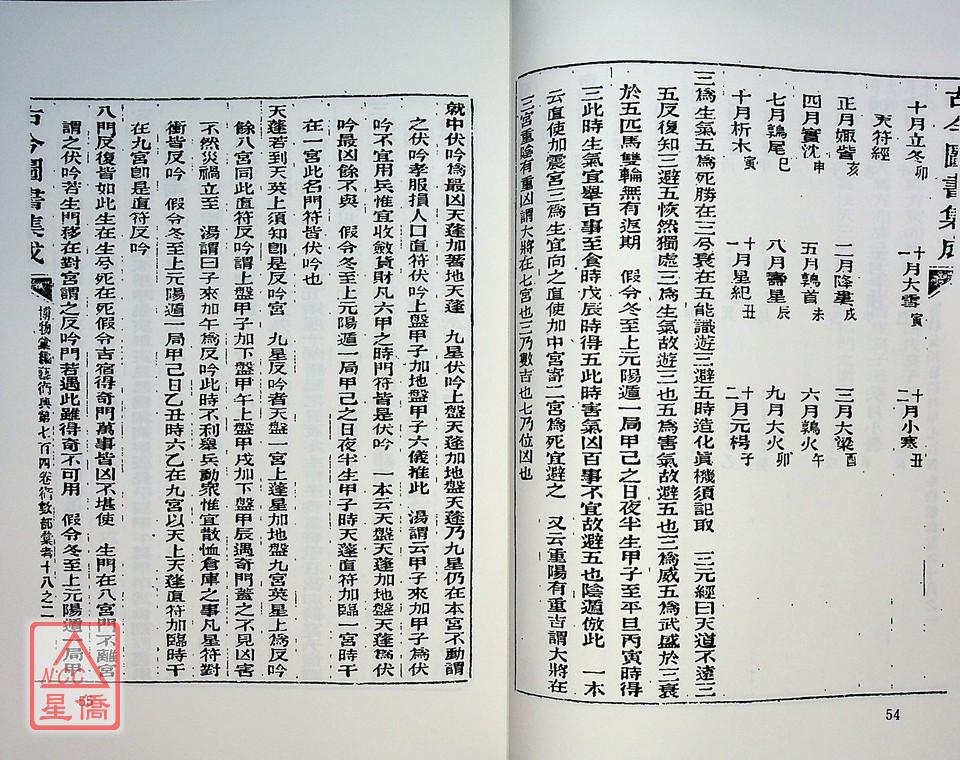 古今圖書集成
十月立冬卯 十一月大雪寅 十二月小寒丑
天符經
正月娵訾亥 二月降婁戌 三月大梁酉
四月實沈申 五月鶉首未 六月鶉火午
七月鶉尾巳 八月壽星辰 九月大火卯
十月析木寅 十一月星紀丑 十二月元枵子
三為生氣五為死勝在三兮衰在五能識遊三避五時造化真機須記取 三元經曰天道不遠三
五反復知三避五恢然獨處三為生氣故遊三也五為害氣故避五也三為威五為武盛於三衰
於五匹馬雙輪無有返期 假令冬至上元陽遁一局甲己之日夜半生甲子至平旦丙寅時得
三此時生氣宜舉百事至食時戊辰時得五此時害氣凶百事不宜故避五也陰遁倣此 一本
云直使加震宮三為生宜向之直使加中宮寄二宮為死宜避之 又云重陽有重吉謂大將在
三宮重陰有重凶謂大將在七宮也三乃數吉也七乃位凶也
54
就中伏吟為最凶天蓬加著地天蓬 九星伏吟上盤天蓬加地盤天蓬乃九星仍在本宮不動謂
之伏吟孝服損人口直符伏吟上盤甲子加地盤甲子六儀推此 湯謂云甲子來加甲子為伏
吟不宜用兵惟宜收斂貨財凡六甲之時門符皆是伏吟 一本云天盤天蓬加地盤天蓬為伏
吟最凶餘不與 假令冬至上元陽遁一局甲己之日夜半生甲子時天蓬直符加臨一宮時干
在一宮此名門符皆伏吟也
天蓬若到天英上須知卽是反吟宮 九星反吟者天盤一宮上蓬星加地盤九宮英星上為反吟
餘八宮同此直符反吟謂上盤甲子加下盤甲午上盤甲戌加下盤甲辰遇奇門蓋之不見凶害
不然災禍立至 湯謂曰子來加午為反吟此時不利舉兵動衆惟宜散恤倉庫之事凡星符對
衝皆反吟 假令冬至上元陽遁一局甲己日乙丑時六乙在九宮以天上天蓬直符加臨時干
在九宮卽是直符反吟
八門反復皆如此生在生兮死在死假令吉宿得奇門萬事皆凶不堪使 生門在八宮門不離宮
謂之伏吟若生門移在對宮謂之反吟門若遇此雖得奇不可用 假令冬至上元陽遁一局甲
古今圖書集成
博物彙編藝術典第七百四卷術數部彙考十八之二
55
NCC
星僑